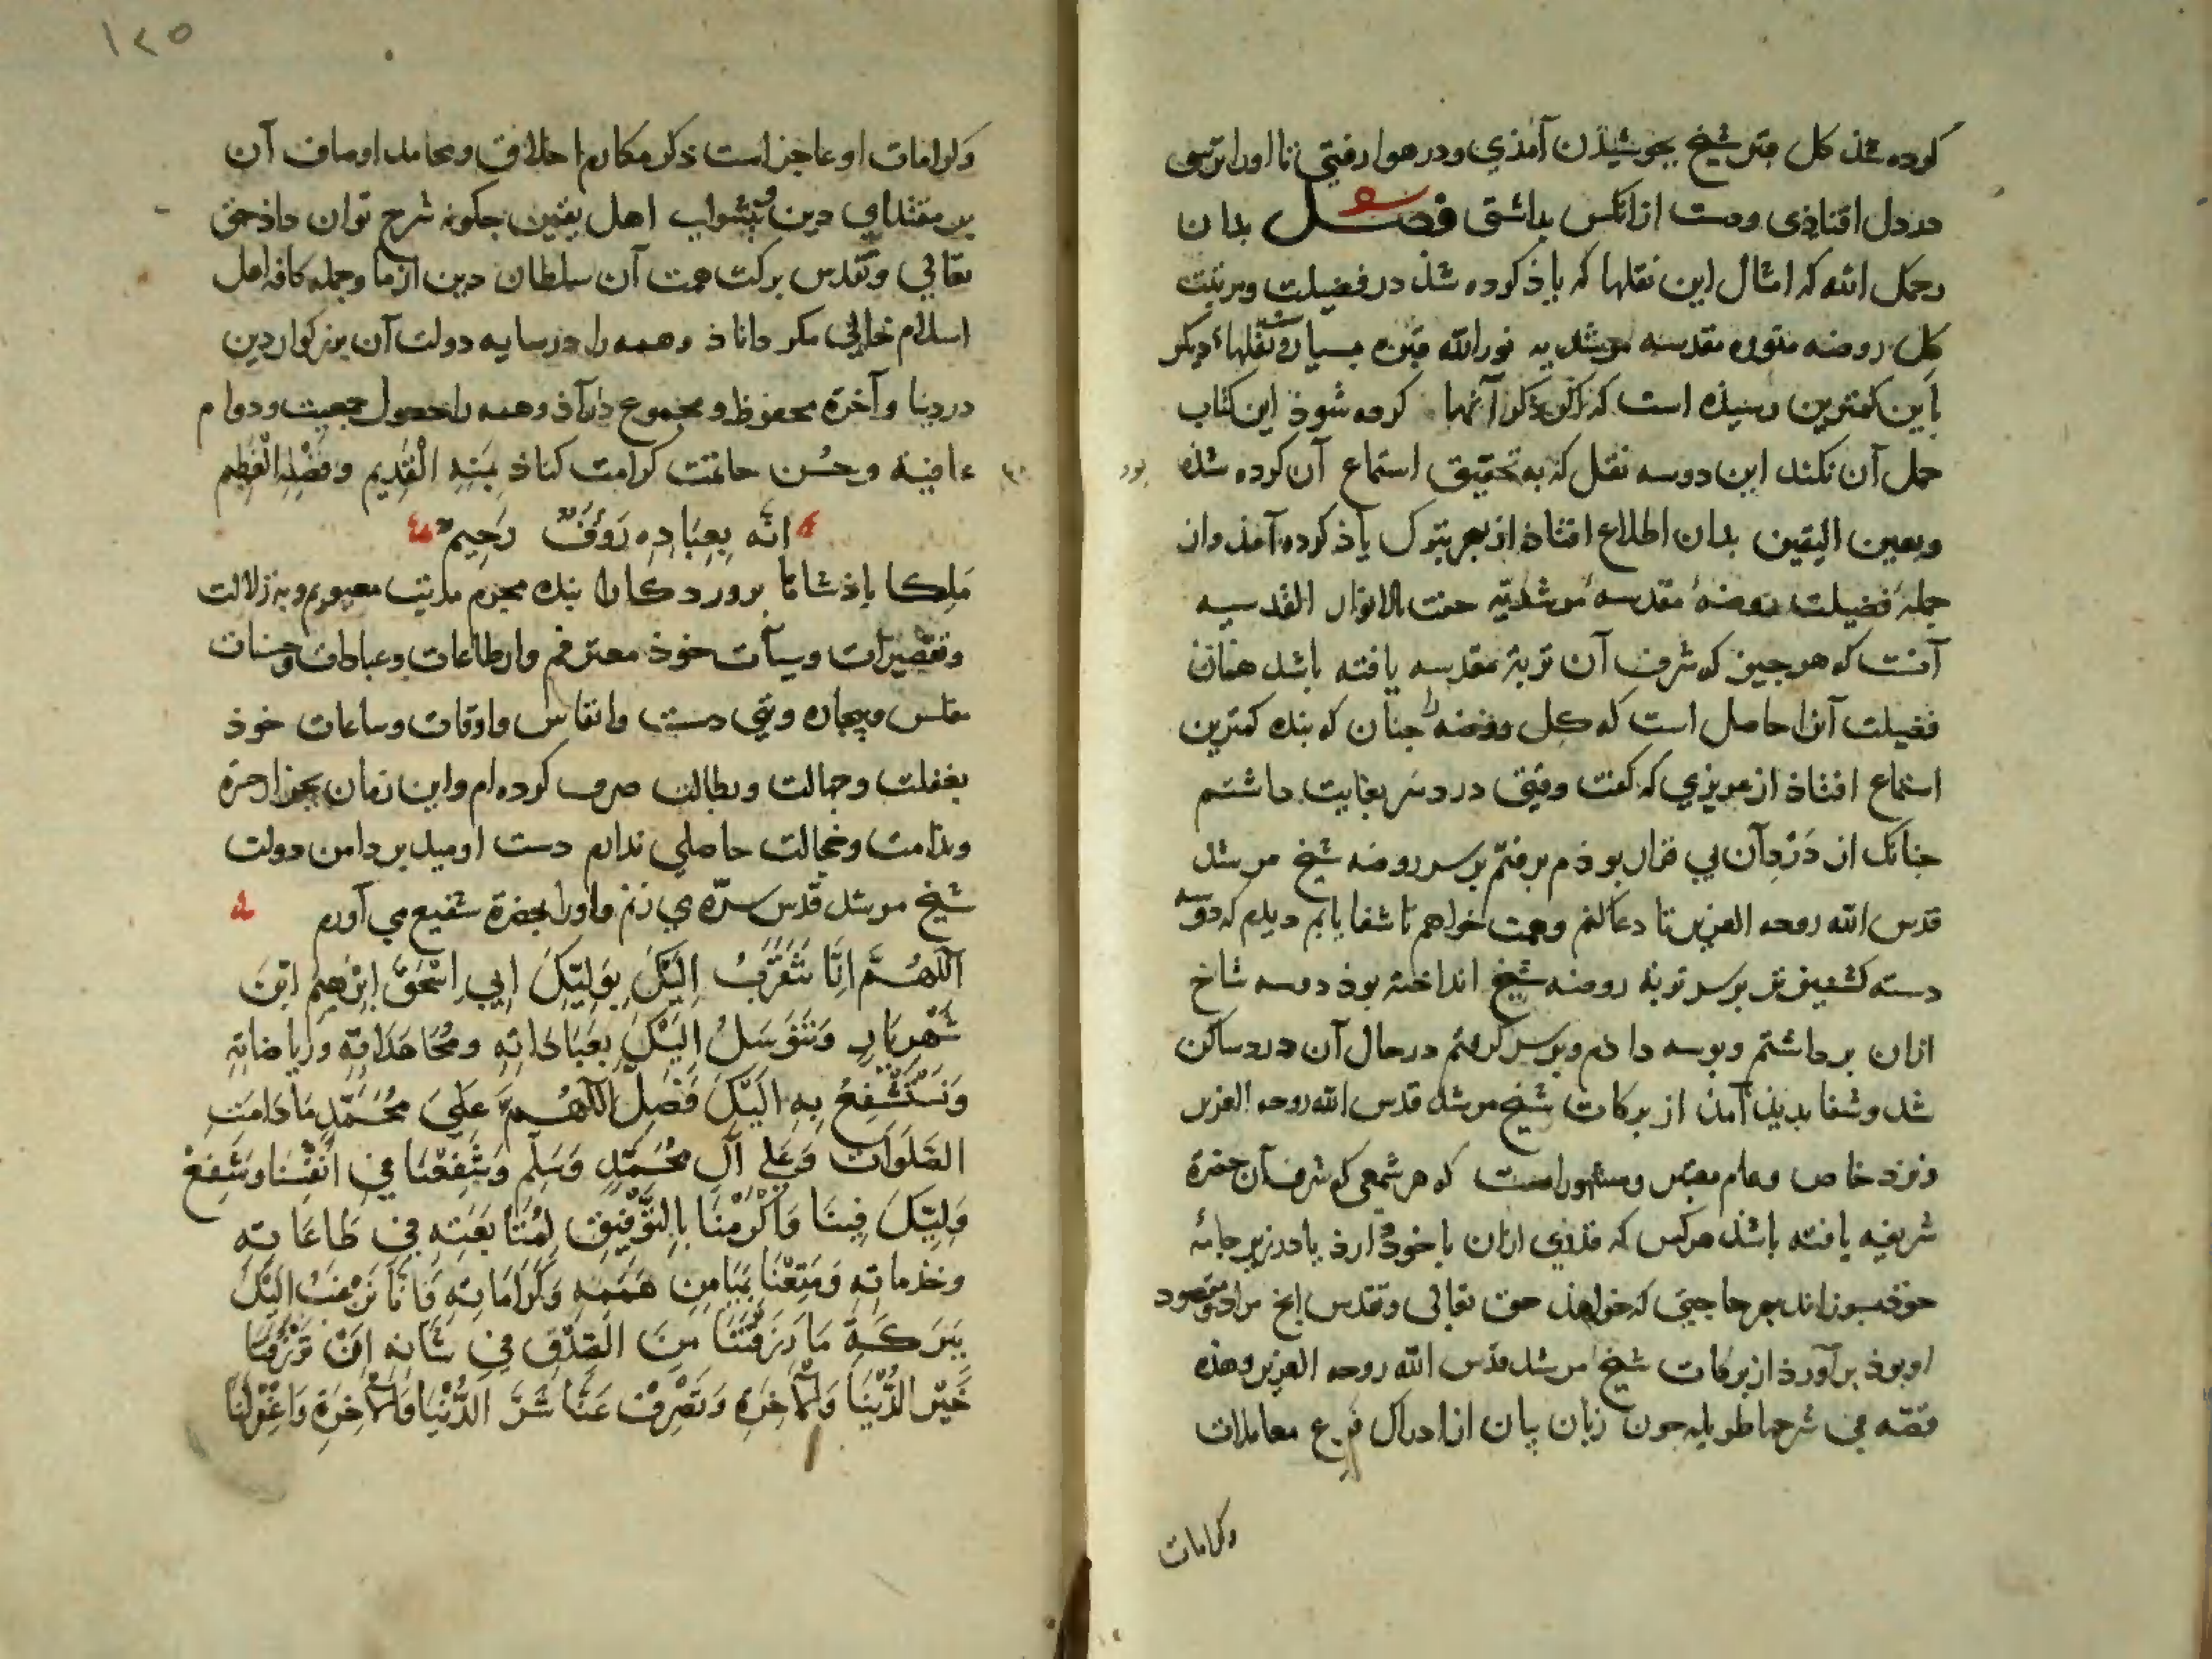 کرده شذ کل قبر شیخ بجوشیذن آمذی و در هوا رفتی تا او را ترسی
در دل افتاذی و دست از انکس بداشتی فصل بدان
رحمک الله که امثال این نقلها که یاذ کرده شذ در فضیلت و مرتبت
کل روضه منوره مقدسه مرشدیه نورالله قبره بسیارست و نقلهاء دیکر
باین کمترین رسیذه است که اکر ذکر آنها کرده شوذ این کتاب
حمل آن نکند این دو سه نقل که به تحقیق استماع آن کرده شذه بود
و بعین الیقین بدان اطلاع افتاذ از بهر تبرک یاذ کرده آمذ و از
جمله فضیلت روضهٔ مقدسهٔ مرشدیّه حفت بالانوار القدسیه
آنست که هر جیز که شرف آن تربة مقدسه یافته باشد همان
فضیلت آنرا حاصل است که کل روضه را جنان که بنده کمترین
استماع افتاذ از عزیزی که کفت وقتی درد سر بغایت داشتم
جنانک از دَرْدِ آن بی قرار بوذم برفتم بر سر روضه شیخ مرشد
قدس الله روحه العزیز تا دعا کنم و همت خواهم تا شفا یابم دیدم که دو سه
دسته کشنیز تر بر سر تربة روضه شیخ انداخته بوذ دو سه شاخ
ازان برداشتم و بوسه دادم و بر سر کرفتم در حال آن درد ساکن
شد و شفا بدیذ آمذ از برکات شیخ مرشد قدس الله روحه العزیز
و نزد خاص و عام معتبر و مشهور است که هر شمعی که شرف آن حضرة
شریفه یافته باشذ هرکس که قدری ازان با خوذ دارذ یا در زیر جامهٔ
خوذ بسوزاند بهر حاجتی که خواهذ حق تعالی و تقدس انج مراد و مقصود
او بوذ برآورذ از برکات شیخ مرشد قدس الله روحه العزیز و هذه
قصّه فی شرحها طول جون زبان بیان از ادراک فرع معاملات
وکرامات
١٢٥
وکرامات او عاجز است ذکر مکارم اخلاق و محامد اوصاف آن
بر مقتدای دین و پیشوای اهل یقین جکونه شرح توان داذ حق
تعالی و تقدس برکت همت آن سلطان دین از ما و جمله کافه اهل
اسلام خالی مکرداناذ و همه را در سایه دولت آن بزرکوار دین
در دنیا و آخرة محفوظ و مجموع داراذ و همه را حصول جمعیت و دوام
عافیة و حُسن خاتمت کرامت کناذ بِمَنِّهِ الْقَدِیم وَفَضْلِهِ الْعَظِیم
اِنَّه بِعِبَادِه رَؤُفٌ رَحِیم
مَلِکا باذشاها بروردکارا بنده مجرم مذنب معیوبم و به زلالت
و تقصیرات و سیآت خوذ معترفم و از طاعات و عبادات و حسنات
مفلس و بیچاره و تهی دست و انفاس و اوقات و ساعات خوذ
بغفلت و جهالت و بطالت صرف کرده ام و این زمان بجز از حسرة
و ندامت و خجالت حاصلی ندارم دست اومید بر دامن دولت
شیخ مرشد قدّس سرّه می زنم و او را بحضرة شفیع می آورم
اَللّهُمَّ اِنَّا نَتَقَرَّبُ اِلَیْکَ بِوَلِیِّکَ اَبِی اِسْحٰقَ اِبْرٰهِیمَ ابْنَ
شَهْرِیَارِ وَنَتَوَسَلُ اِلَیْکَ بِعِبَادَاتِهِ وَمُجَاهَدَاتِهِ وَرِیَاضَاتِهِ
وَنَسْتَشْفِعُ بِهِ اِلَیْکَ فَصَلِّ اَللّهُمَّ عَلَی مُحَمَّدٍ مَادَامَتِ
الصَّلَوَاتُ وَعَلَی آلِ مُحَمَّدٍ وَسَلِّمْ وَشَفِّعْنَا فِی اَنْفُسِنَا وَشَفِّعْ
وَلِیِّکَ فِینَا وَاَکْرِمْنَا بِالتَّوْفِیقِ لِمُتَابَعَتِهِ فِی طَاعَاتِهِ
وخدماتِهِ وَمَتِّعْنَا بِمَیَامِنِ هِمَمِهِ وَکَرَامَاتِهِ فَاِنَّا نَرْغَبُ اِلَیْکَ
بِبَرَکَةِ مَا رَزَقْتَنَا مِنَ الصِّدْقِ فِی شَانِهِ اَنْ تَرْزُقَنَا
خَیْرَ الدُّنْیَا وَالْآخِرَةِ وَتَصْرِفَ عَنَّا شَرَّ الدُّنْیَا وَالْآخِرَةِ وَاغْفِرْلَنَا